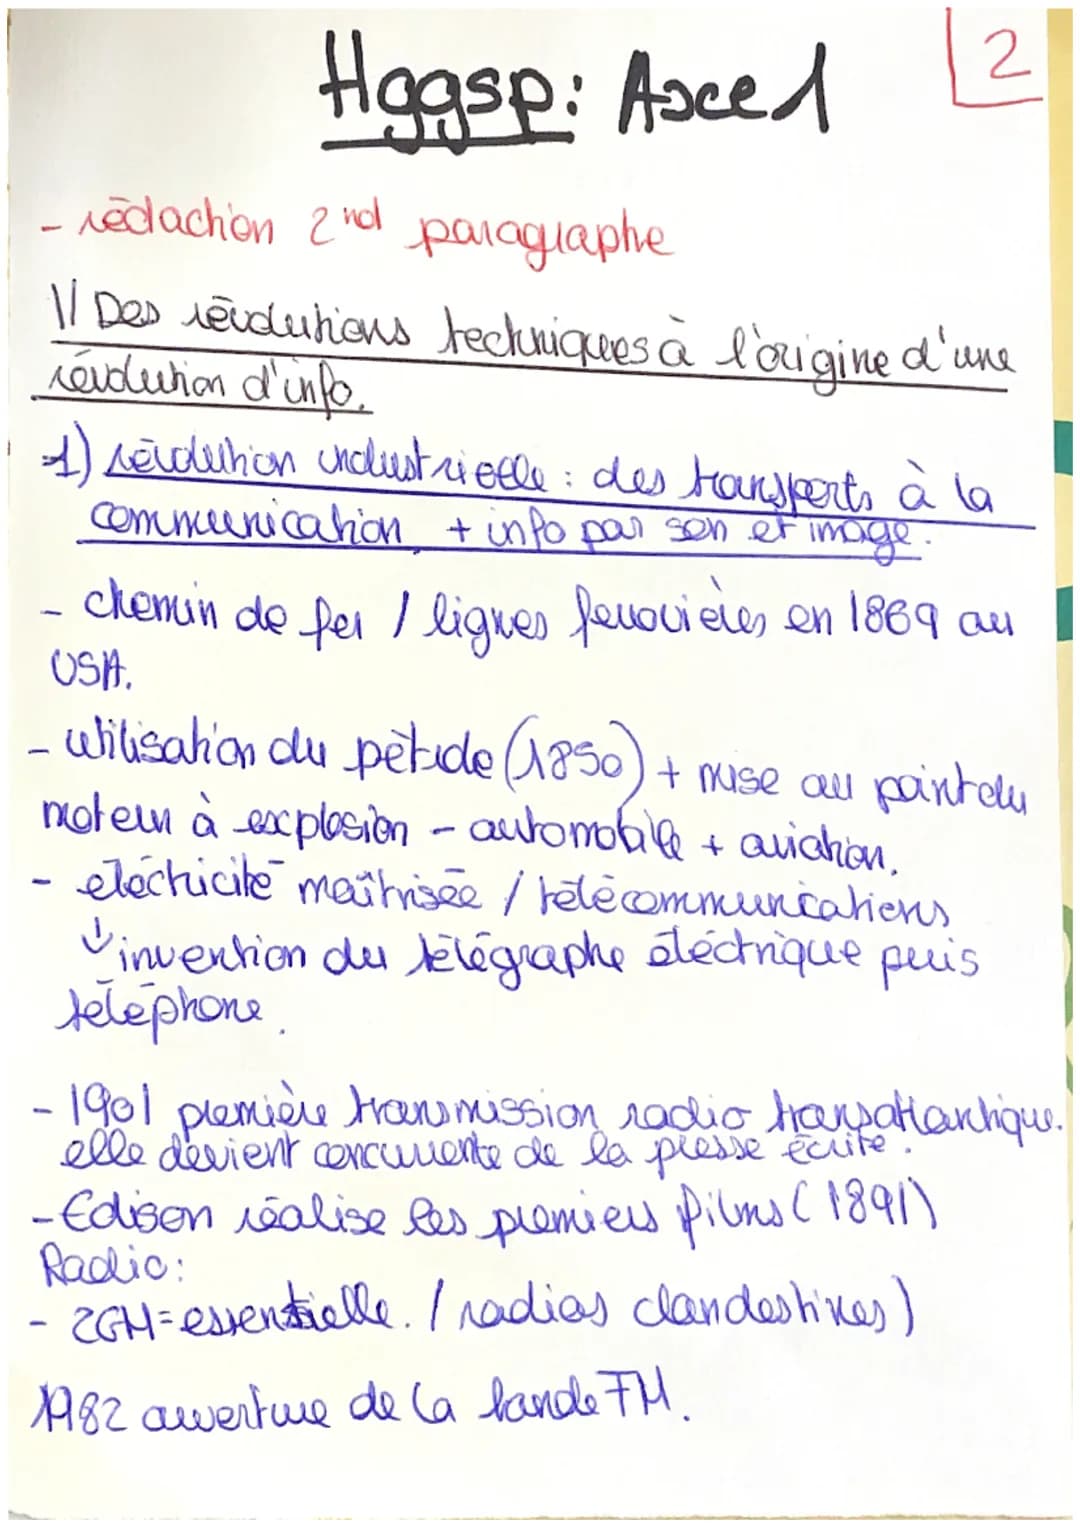 Hggsp: Axe 1
2
- rédaction 2nd paragraphe
1/ Des révolutions techniques à l'origine d'une
révolution d'info.
1) révolution industrielle : des transports à la
communication + info par son et image.
- chemin de fer / lignes ferrovières en 1869 au
USA.
- utilisation du pétrole (1850) + mise au point du
moteur à explosion - automobile + aviation.
- eléctricité maîtrisée / télécommunications
↓ invention du télégraphe éléctrique puis
téléphone.
- 1901 première transmission radio transatlantique.
elle devient concurrente de la presse écrite.
- Edison réalise les premiers films (1891)
Radio:
- 2GM = essentielle. / radios clandestines)
1982 ouverture de la bande FM.